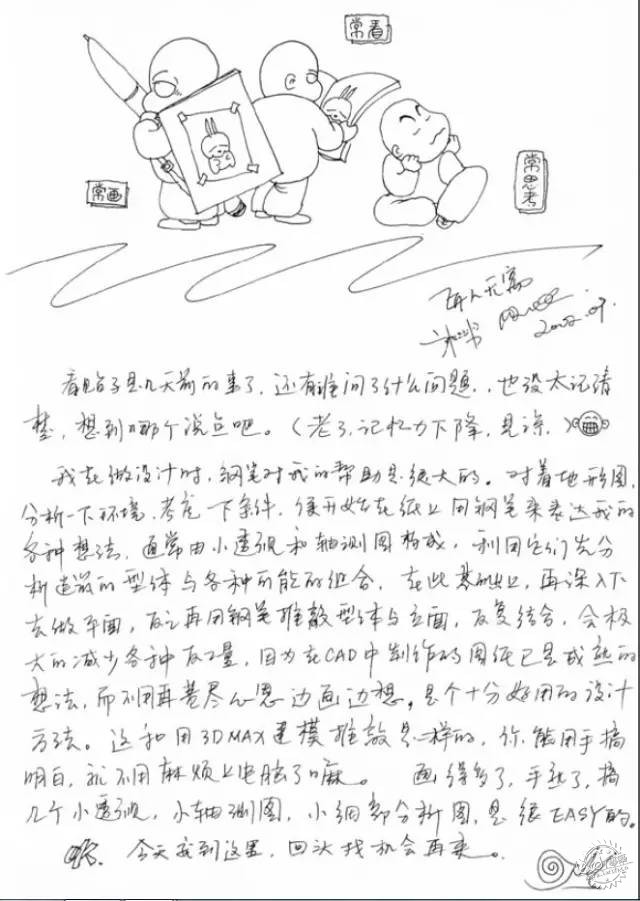 常看
常画
常思考
2002.09.
看贴子是几天前的事了，还有谁问了什么问题，也没太记清
楚，想到哪个说点吧。（老了，记忆力下降，见谅。）
我在做设计时，钢笔对我的帮助是很大的。对着地形图，
分析一下环境，考虑一下条件，便开始在纸上用钢笔来表达我的
各种想法，通常由小透视和轴测图构成，利用它们充分
析造最的型体与各种可能的组合，在此基础上，再深入下
去做平面，反之再用钢笔推敲型体与立面，反复结合，会极
大的减少各种反工量，因为在CAD中制作的图纸已是成熟的
想法，而不用再费尽心思边画边想，是个十分好用的设计
方法。这和用3DMAX建模推敲是一样的，你能用手搞
明白，就不用麻烦上电脑了嘛。 画得多了，手熟了，搞
几个小透视，小轴测图，小细部分析图，是很EASY的。
OK. 今天就到这里，回头找机会再来。